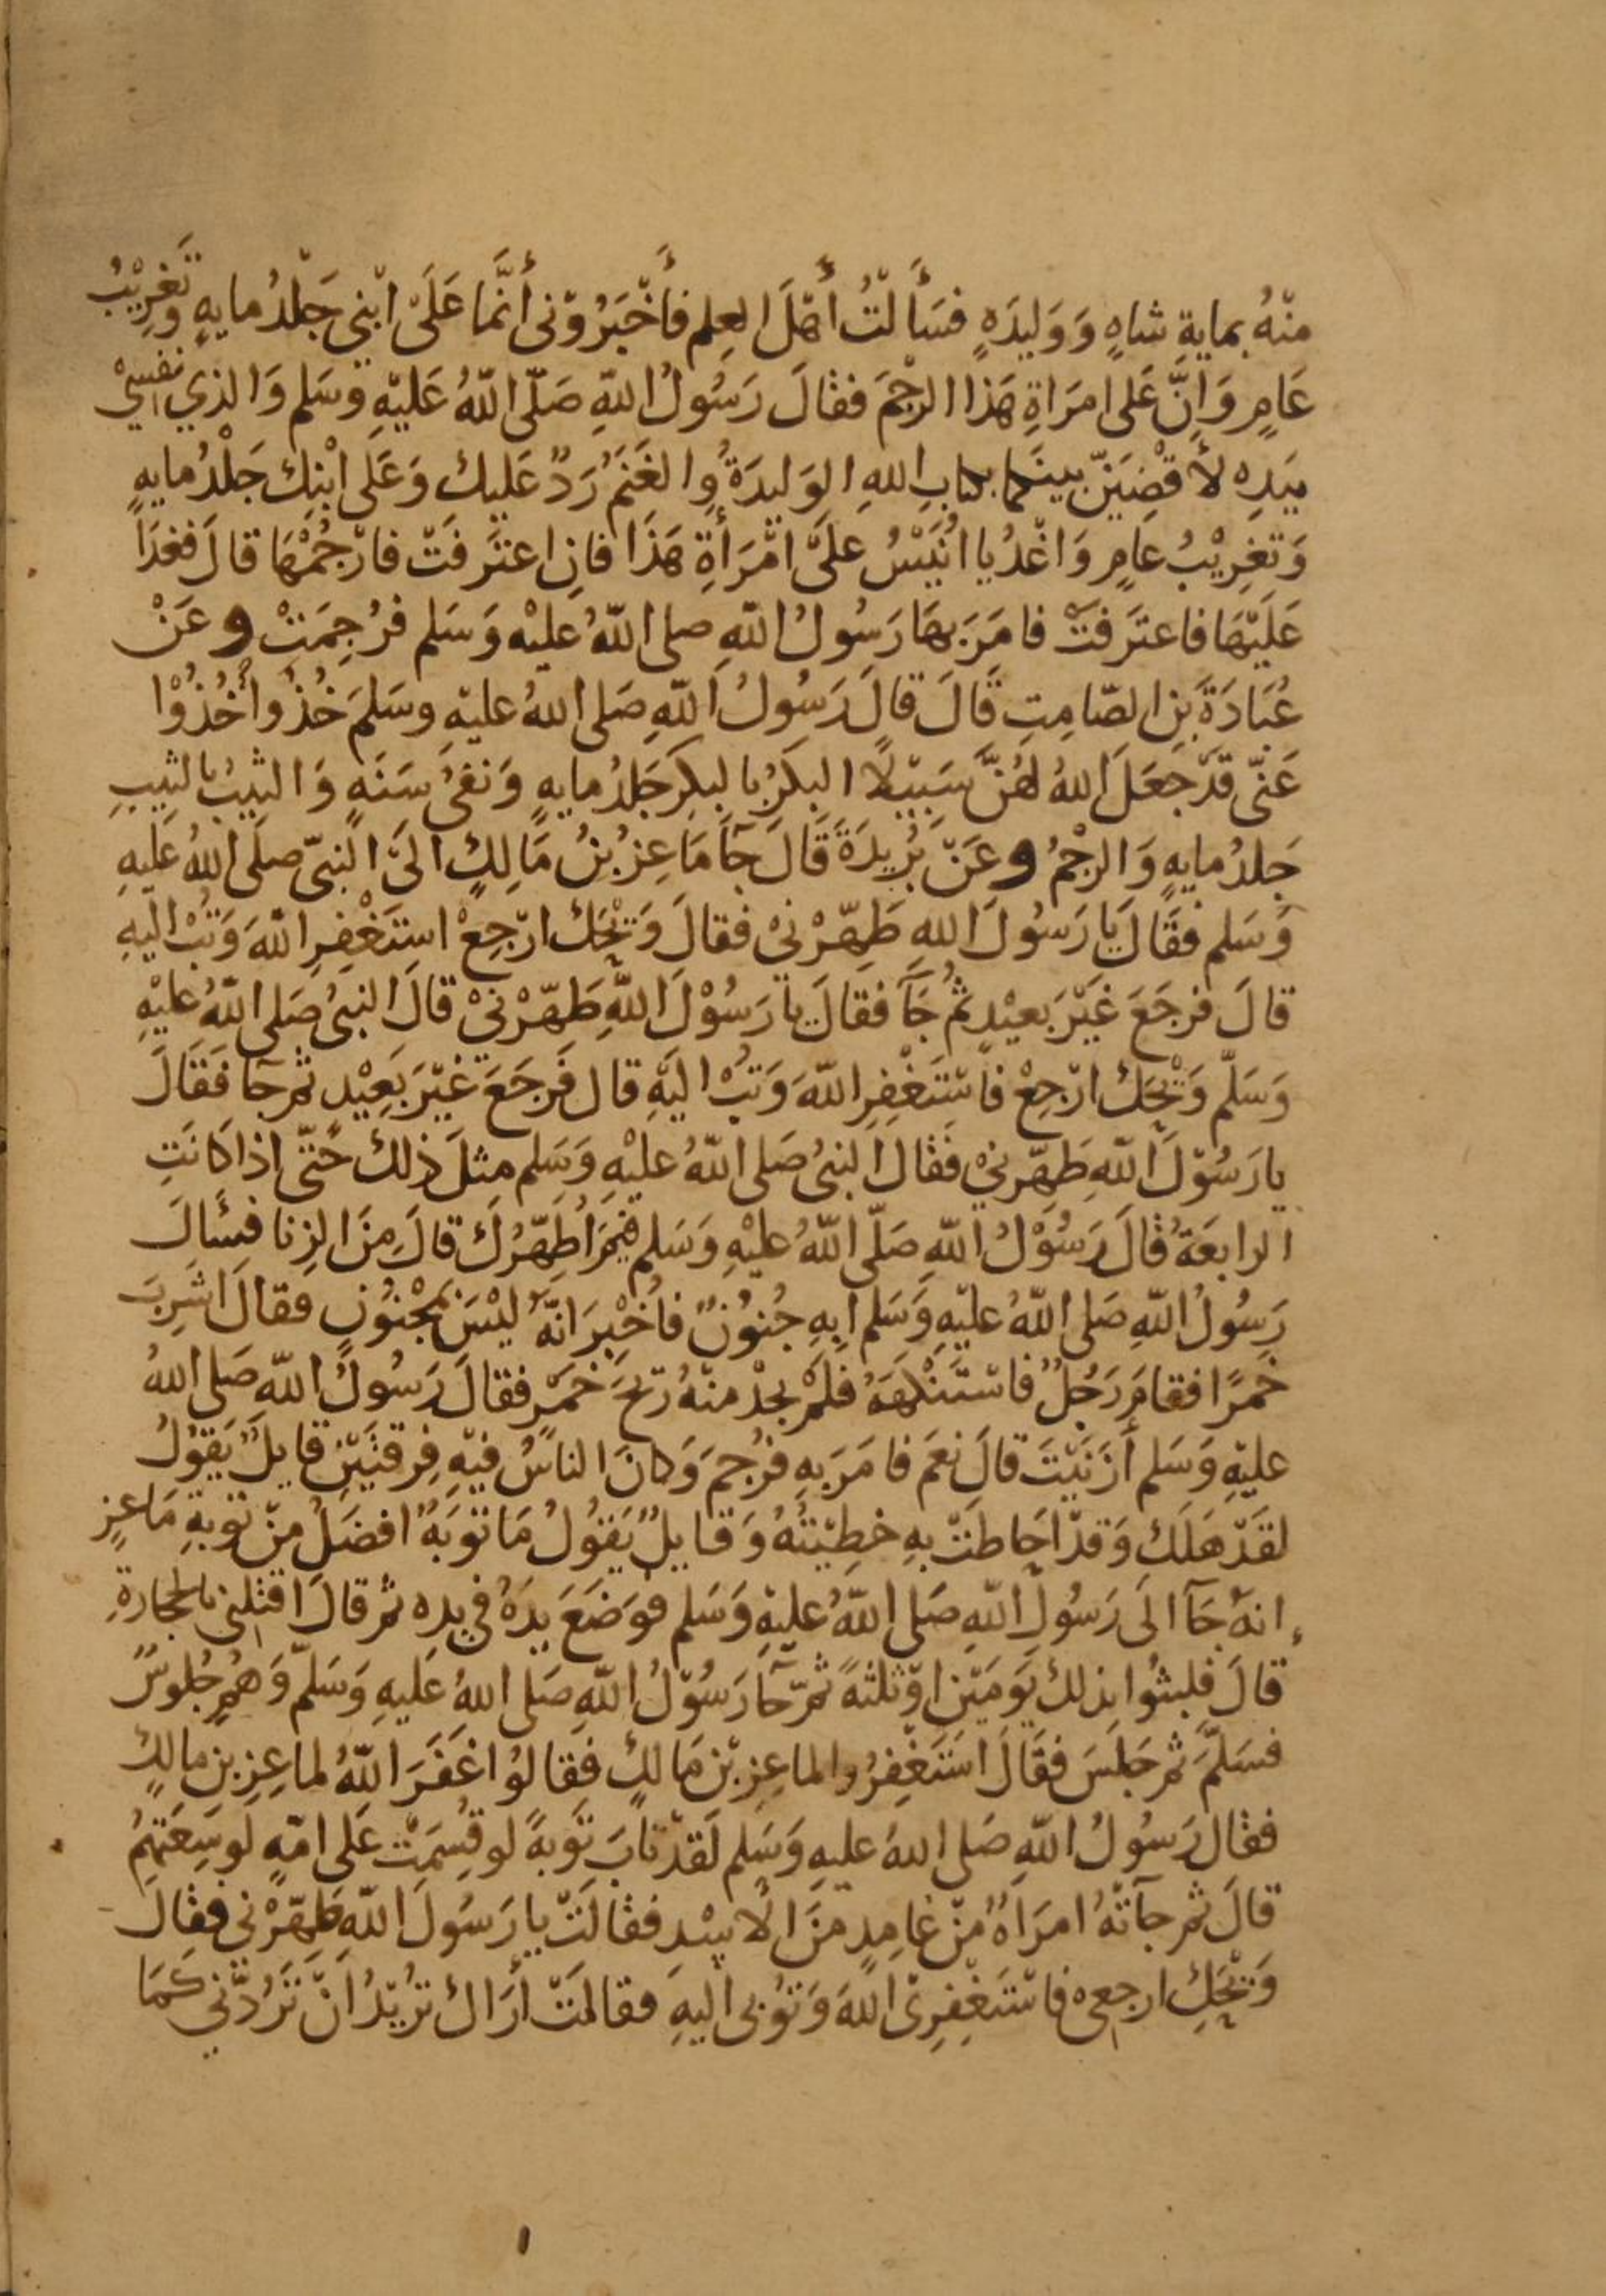 منْهُ بمايةِ شاهٍ وَوَليدَهٍ فسَأَلتُ أَهْلَ العِلم فأَخْبَرُوْنى أَنَّما عَلَى ابْنِى جَلْدُ مايهٍ وتَغرِيْبُ
عَامٍ وَاِنَّ عَلى امرَاةِ هَذا الرجْمَ فقالَ رَسُولُ اللهِ صَلّى اللهُ عَليْهِ وسَلم وَالذي نفسِيْ
بيَدِهِ لأَقْضِيَنّ بينَكما بكتابِ اللهِ الوَليدَةُ وِالغَنَمُ رَدٌ عَليك وَعَلى ابْنِك جَلْدُ مايهٍ
وَتغرِيْبُ عَامٍ وَاغْدُ يا اُنَيْسُ عَلَى امْرَأةِ هَذَا فانِ اعترَفَتْ فارْجُمْهَا قالَ فغدَا
عَلَيْهَا فاعترَفَتْ فامَرَ بهَا رَسُولُ اللهِ صلى اللهُ عليْه وَسَلم فرُجِمَتْ وعَنْ
عُبَادَةَ بنِ الصّامِتِ قَالَ قالَ رَسُولُ اللهِ صَلى اللهُ عليْهِ وسَلمَ خُذُوا خُذُوْا
عَنّى قدْ جَعَلَ اللهُ لهُنَّ سَبِيْلًا البكرُ بالبكِرِ جَلدُ مايهٍ وَنفىُ سَنَهٍ وَالثيبُ بالثيبِ
جَلدُ مايهٍ وَالرجْمُ وعَنْ بُرَيدَةَ قَالَ جَآ مَاعِزُ بْنُ مَالِكٍ الىَ النبىّ صلى اللهُ عَليهِ
وَسَلم فقَالَ يَا رَسُولَ اللهِ طَهِّرْنىْ فقالَ وَيْحَك ارْجِعْ استَغْفِرِ اللهَ وَتُبْ اليهِ
قالَ فرجَعَ غَيْرَ بَعيْدٍ ثمُ جَآ فقَالَ يا رَسُوْلَ اللهِ طَهّرْنىْ قالَ النبىُ صَلى اللهُ عليْهِ
وَسَلّم وَيْحَك ارْجِعْ فاسْتَغْفِرِ اللهَ وَتُبْ اليْهِ قال فَرجَعَ غَيْرَ بَعِيْدٍ ثم جَآ فَقَالَ
يا رَسُوْلَ اللهِ طَهِّرنيْ فقالَ النبىُ صَلى اللهُ عليْهِ وَسَلم مِثلَ ذلك حَتّى اذا كانَتِ
الرابعَةُ قالَ رَسُوْلُ اللهِ صَلّى اللهُ عليْهِ وَسَلم فيْمَ اُطَهّرُكَ قالَ مِنَ الزِنا فسَأَلَ
رَسُولُ اللهِ صَلى اللهُ عليْهِ وَسَلم اَبِهِ جُنوُنٌ فاُخْبِرَ انّهُ ليْسَ بمَجْنوُنٍ فقالَ اشَرِبَ
خمَرًا فقامَ رَجُلٌ فاسْتَنْكهَهُ فلمْ يجدْ منْهُ رِيْحَ خَمْرٍ فقالَ رَسُولُ اللهِ صَلى اللهُ
عليْهِ وَسَلم أزَنَيْتَ قالَ نعَم فامَرَ بهِ فرُجمَ وَكانَ الناسُ فيْهِ فِرقتَيْنِ قايلٌ يَقوُلُ
لقَدْ هَلَك وَقدْ احَاطَتْ بهِ خطِيْئتُهُ وَقايلٌ يَقوُلُ مَا توْبَهٌ افضَلُ مِنْ توْبةِ مَاعزٍ
انهُ جَآ الَى رَسُولِ اللهِ صَلى اللهُ عليْهِ وَسَلم فوَضَعَ يدَهُ في يدِه ثم قالَ اقتلنى بالحجارَةِ
قالَ فلبثُوا بذلك يَومَيْنِ اوْ ثلثهً ثمّ جَآ رَسُوْلُ اللهِ صَلى اللهُ عَليهِ وَسَلّم وَهُم جُلوسٌ
فسَلّمَ ثم جَلسَ فقَالَ استَغْفِرُوا لماعِزِ بْنِ مَالكٍ فقالوُا غَفَرَ اللهُ لماعِزِ بنِ مالكٍ
فقالَ رَسُولُ اللهِ صَلى اللهُ عليهِ وَسَلم لَقدْ تابَ تَوبهً لو قُسِمَتْ عَلى امّهٍ لوَسِعَتهمُ
قالَ ثم جآتْهُ امرَاهٌ مِنْ غامِدٍ منَ الاسْدِ فقالَتْ يا رَسُولَ اللهِ طَهِّرْنى فقالَ
وَيْحَكِ ارجعى فاسْتَغْفِرِى اللهَ وَتوُبى اليهِ فقالَتْ أرَاك ترُيْدُ انْ تَرُدّنى كَمَا